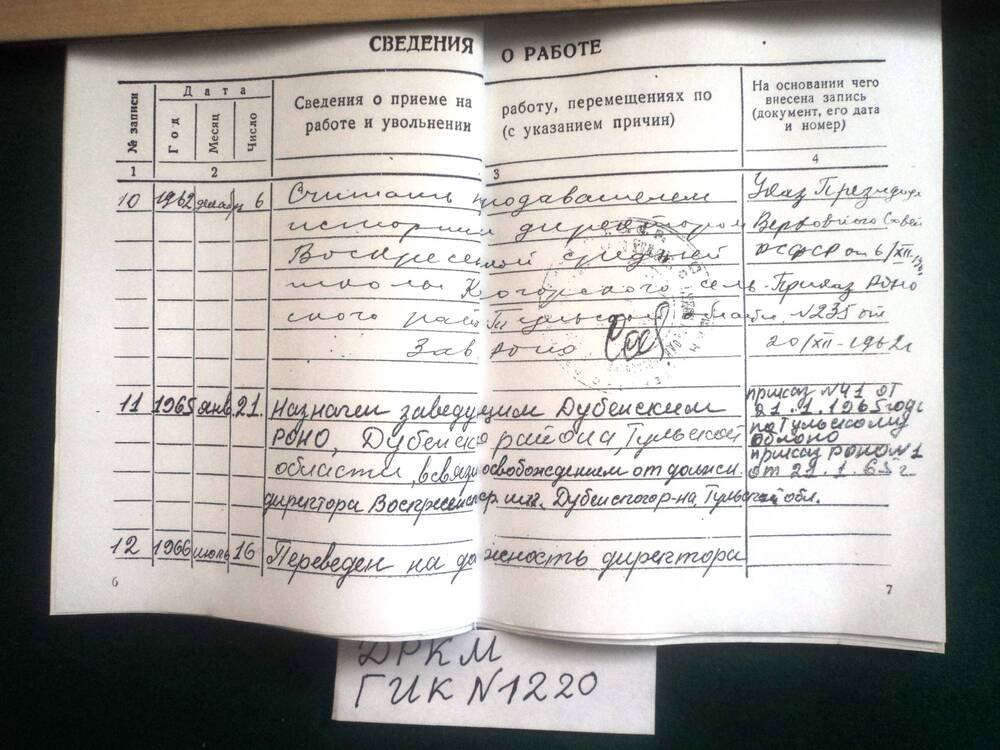 СВЕДЕНИЯ О РАБОТЕ
№ записи
Дата
Год
Месяц
Число
Сведения о приеме на работу, перемещениях по
работе и увольнении (с указанием причин)
На основании чего
внесена запись
(документ, его дата
и номер)
1 2 3 4
10 1962 декабр 6 Считать преподавателем
истории директором
Воскресенской средней
школы сель-
ского Тульской
Зав. РОНО
Указ Президиума
Верховного Совета
РСФСР от 6/XII-
Приказ РОНО
№235 от
20/XII-1962г
11 1965 янв. 21. Назначен заведующим Дубенским
РОНО, Дубенского района Тульской
области, в связи освобождением от должн.
директора Воскресенск. ср. шк. Дубенского р-на, Тульской обл.
приказ №41 от
21.1.1965 года
по Тульскому
облоно
приказ РОНО №1
от 21.1.65 г.
12 1966 июль 16 Переведен на должность директора
6
7
ДРКМ
ГИК №1220